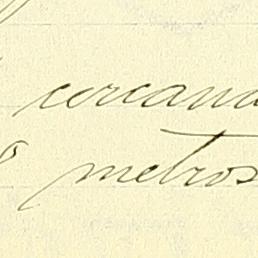 cercana
metros